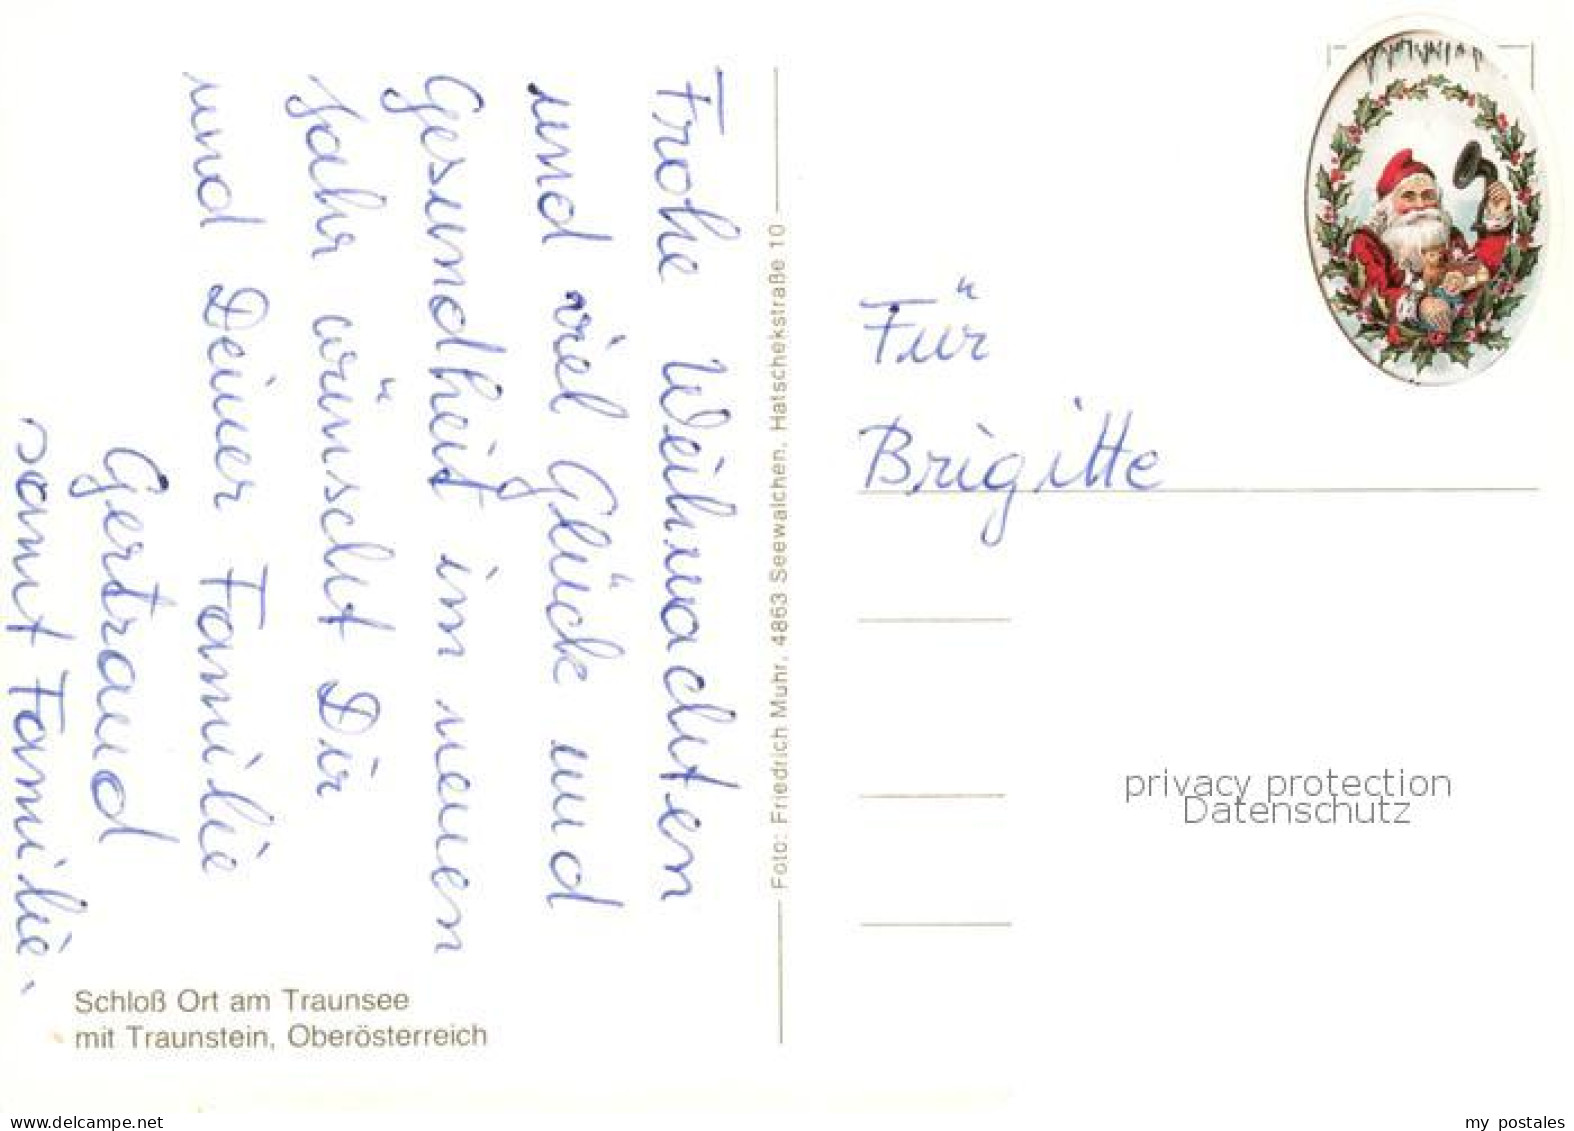 Frohe Weihnachten
und viel Glück und
Gesundheit im neuen
Jahr wünscht Dir
und Deiner Familie
Gertraud
samt Familie.
Schloß Ort am Traunsee
mit Traunstein, Oberösterreich
Foto: Friedrich Muhr, 4863 Seewalchen, Hatschekstraße 10
Für
Brigitte
privacy protection
Datenschutz
www.delcampe.net
my postales